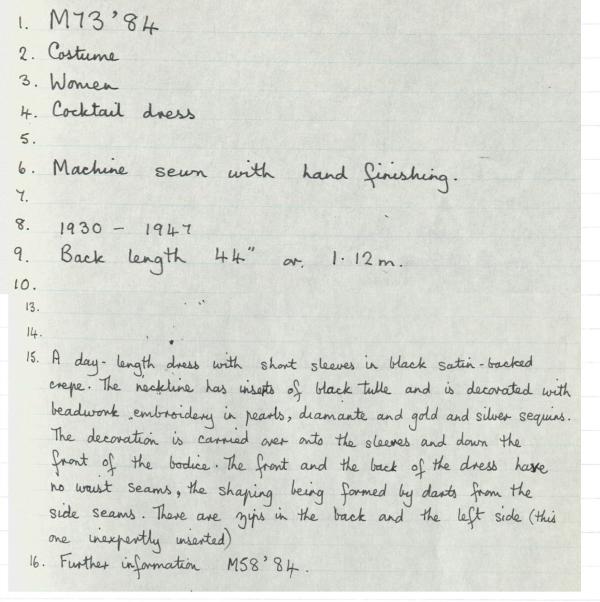 1. M73'84
2. Costume
3. Women
4. Cocktail dress
5.
6. Machine sewn with hand finishing.
7.
8. 1930 - 1947
9. Back length 44" or. 1·12m.
10.
13.
14.
15. A day-length dress with short sleeves in black satin-backed
crepe. The neckline has inserts of black tulle and is decorated with
beadwork embroidery in pearls, diamante and gold and silver sequins.
The decoration is carried over onto the sleeves and down the
front of the bodice. The front and the back of the dress have
no waist seams, the shaping being formed by darts from the
side seams. There are zips in the back and the left side (this
one inexpertly inserted)
16. Further information M58'84.